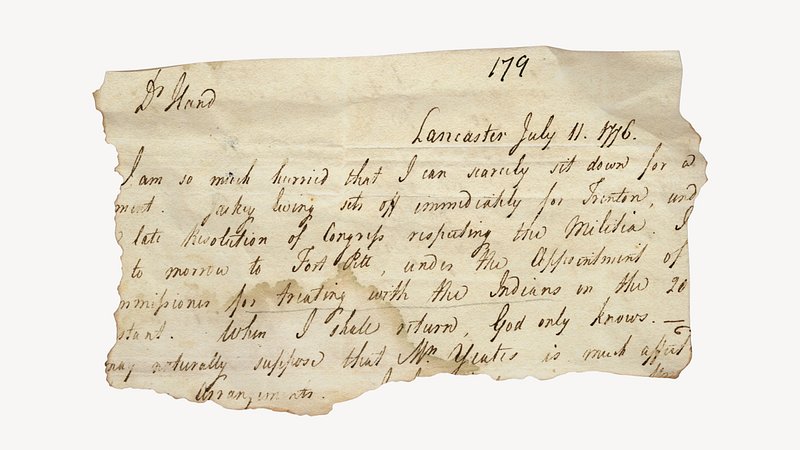 179
Dr Hand
Lancaster July 11. 1776.
I am so much hurried that I can scarcely sit down for a
ment. Jasky Ewing sets off immediately for Trenton, und
late Resolution of Congress respecting the Militia. I
to morrow to Fort Pitt, under the Appointment of
mmissioner for treating with the Indians on the 20
stant. When I shall return, God only knows. —
may naturally suppose that Mrs Yeates is much affect
Arrangements.